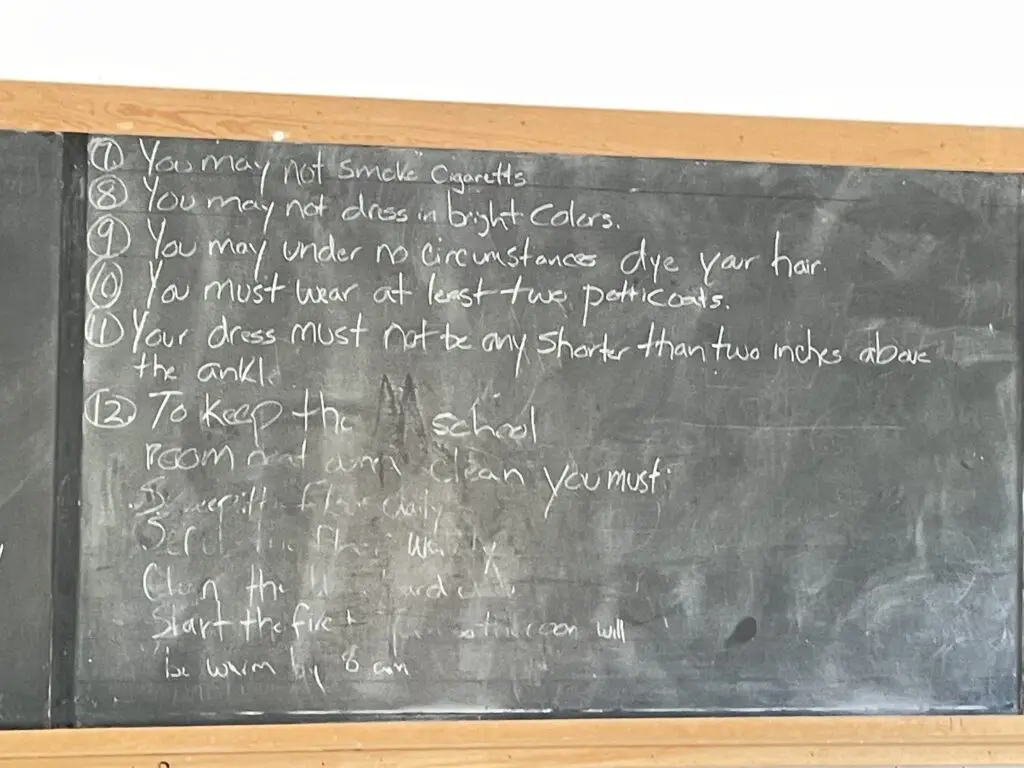 ⑦ You may not smoke cigaretts
⑧ You may not dress in bright colors.
⑨ You may under no circumstances dye your hair.
⑩ You must wear at least two petticoats.
⑪ Your dress must not be any shorter than two inches above
the ankle
⑫ To keep the school
room neat and clean you must:
Sweep the floor daily
Scrub the floor weekly
Clean the
Start the fire room will
be warm by 8 am